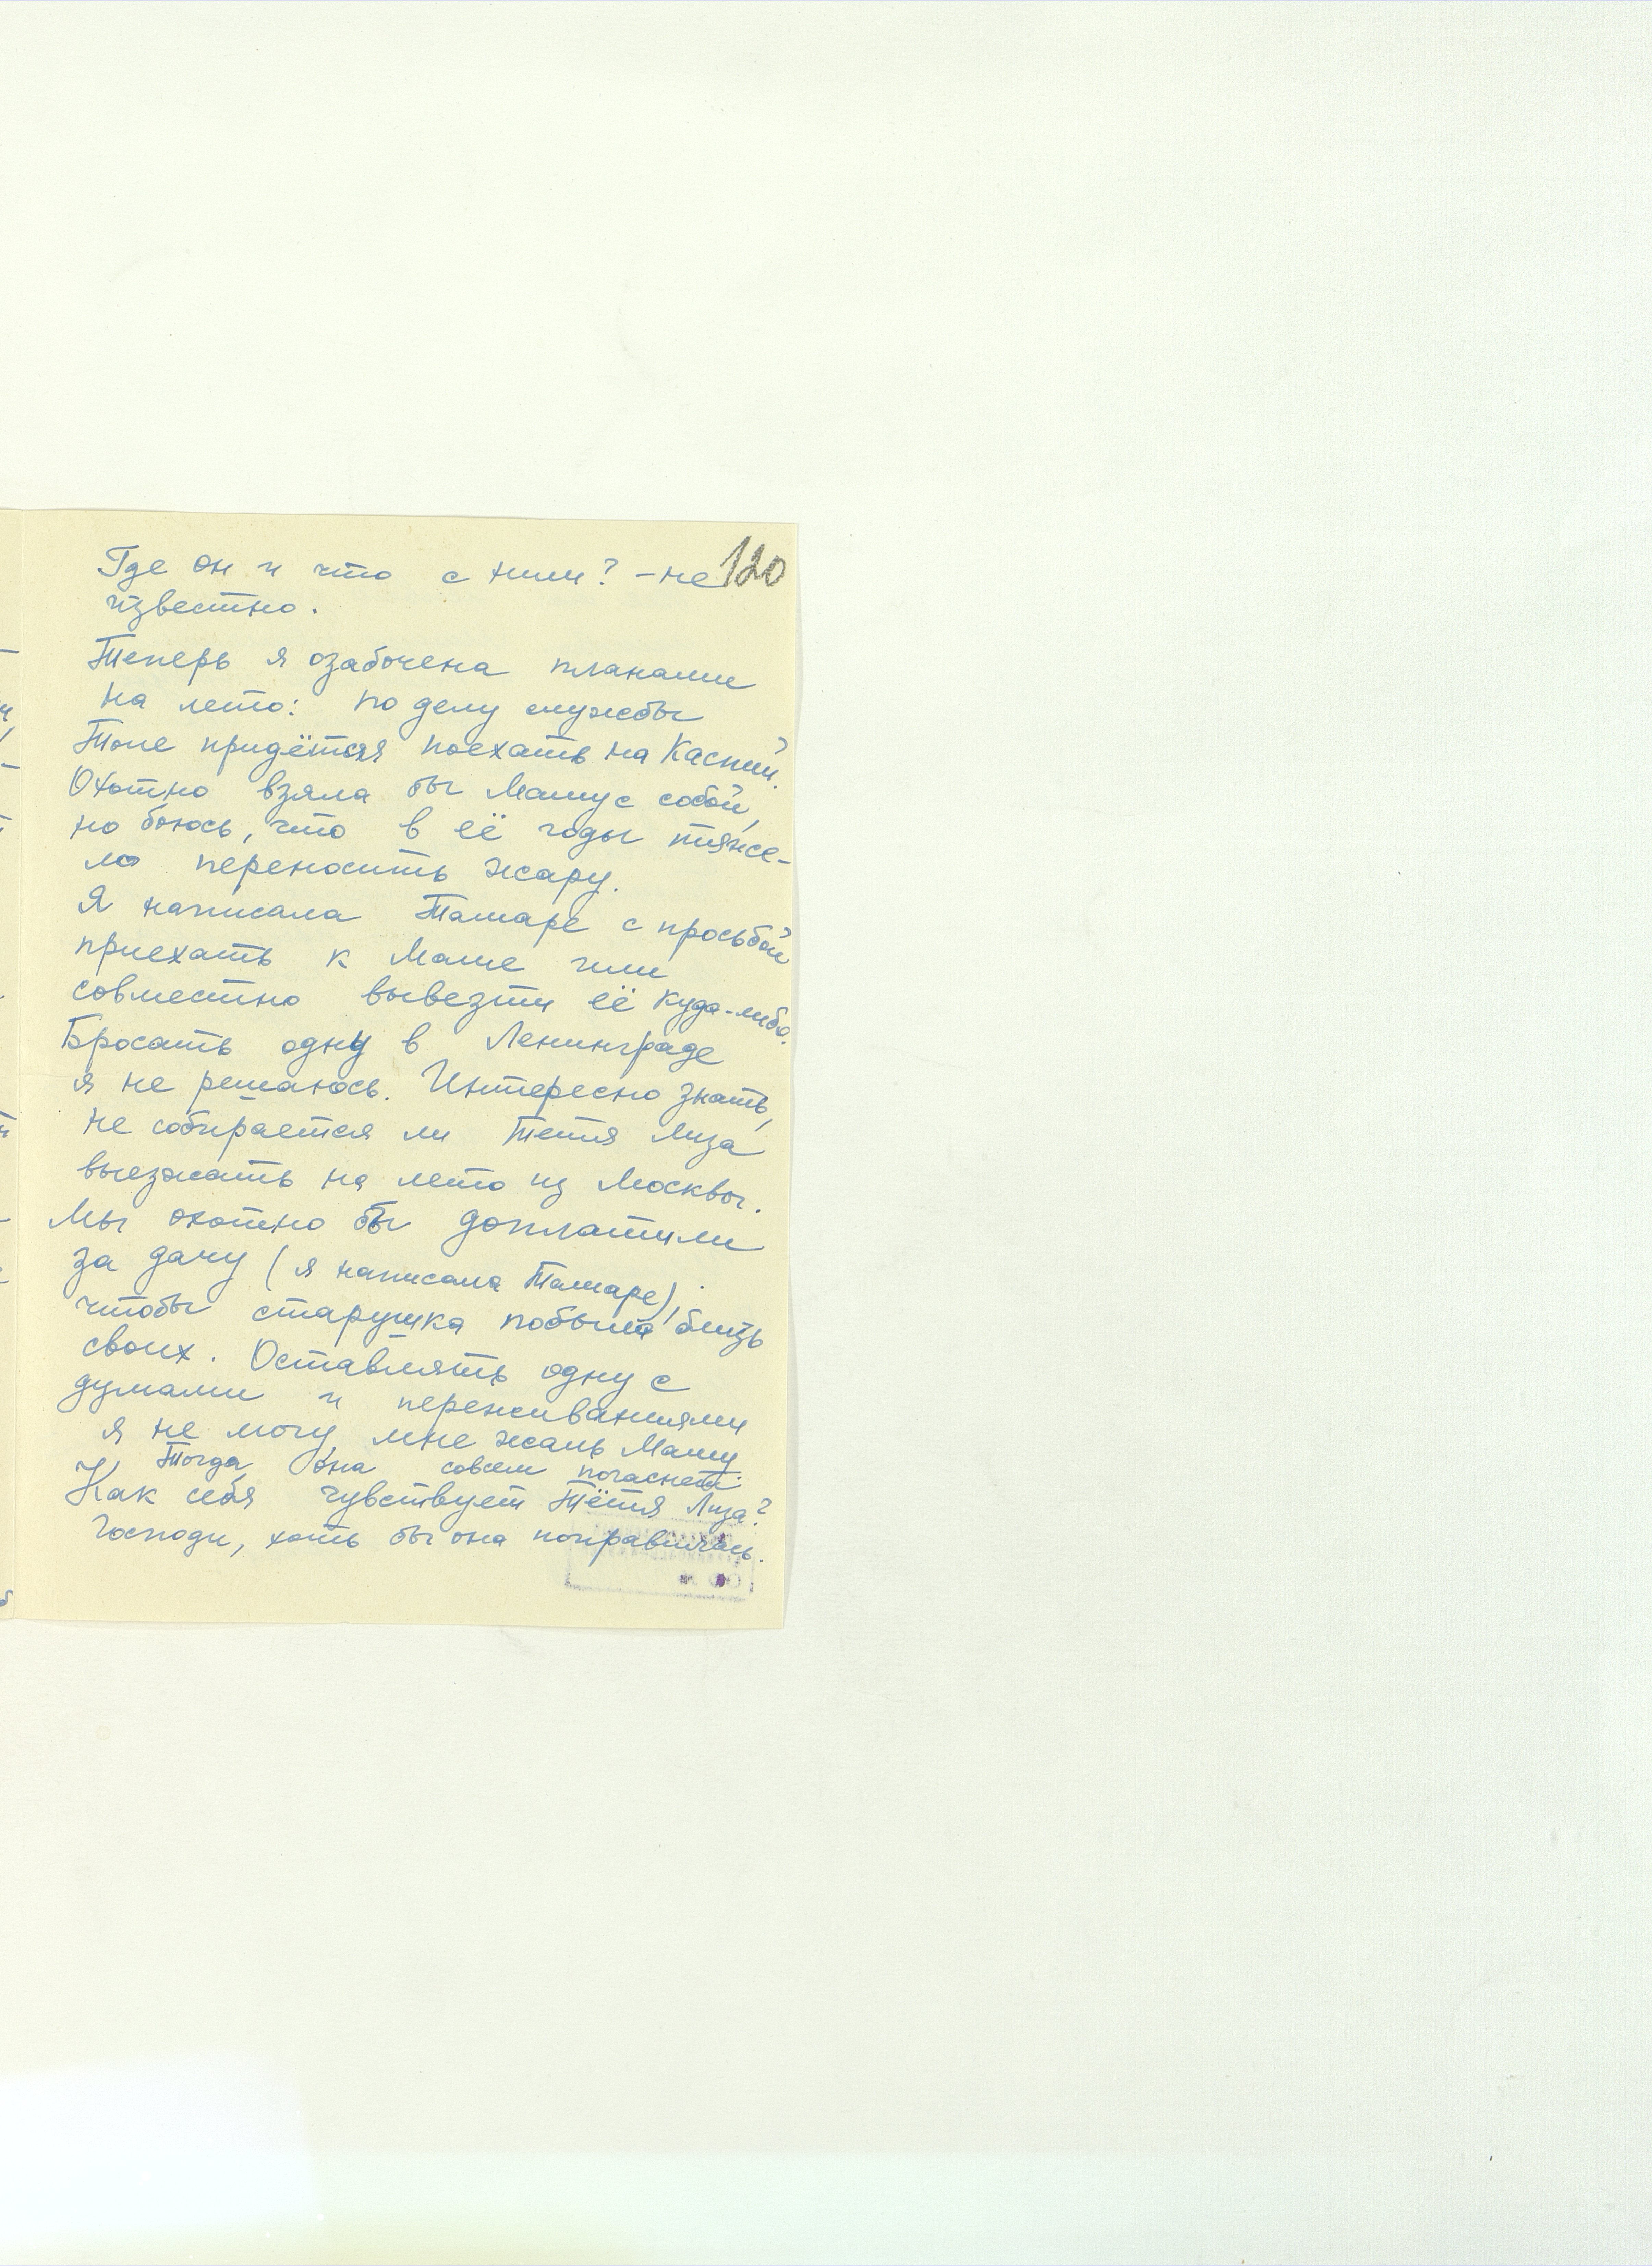 120
Где он и что с ним? – не
известно.
Теперь я озабочена планами
на лето: по делу службы
Толе придётся поехать на Каспий.
Охотно взяла бы Машу с собой,
но боюсь, что в её годы тяже-
ло переносить жару.
Я написала Тамаре с просьбой
приехать к Маше или
совместно вывезти её куда-либо.
Бросать одну в Ленинграде
я не решаюсь. Интересно знать,
не собирается ли тетя Лиза
выезжать на лето из Москвы.
Мы охотно бы доплатили
за дачу (я написала Тамаре),
чтобы старушка побыла близь
своих. Оставлять одну с
думами и переживаниями
я не могу, мне жаль Машу
Тогда она совсем погаснет.
Как себя чувствует тётя Лиза?
Господи, хоть бы она поправилась.